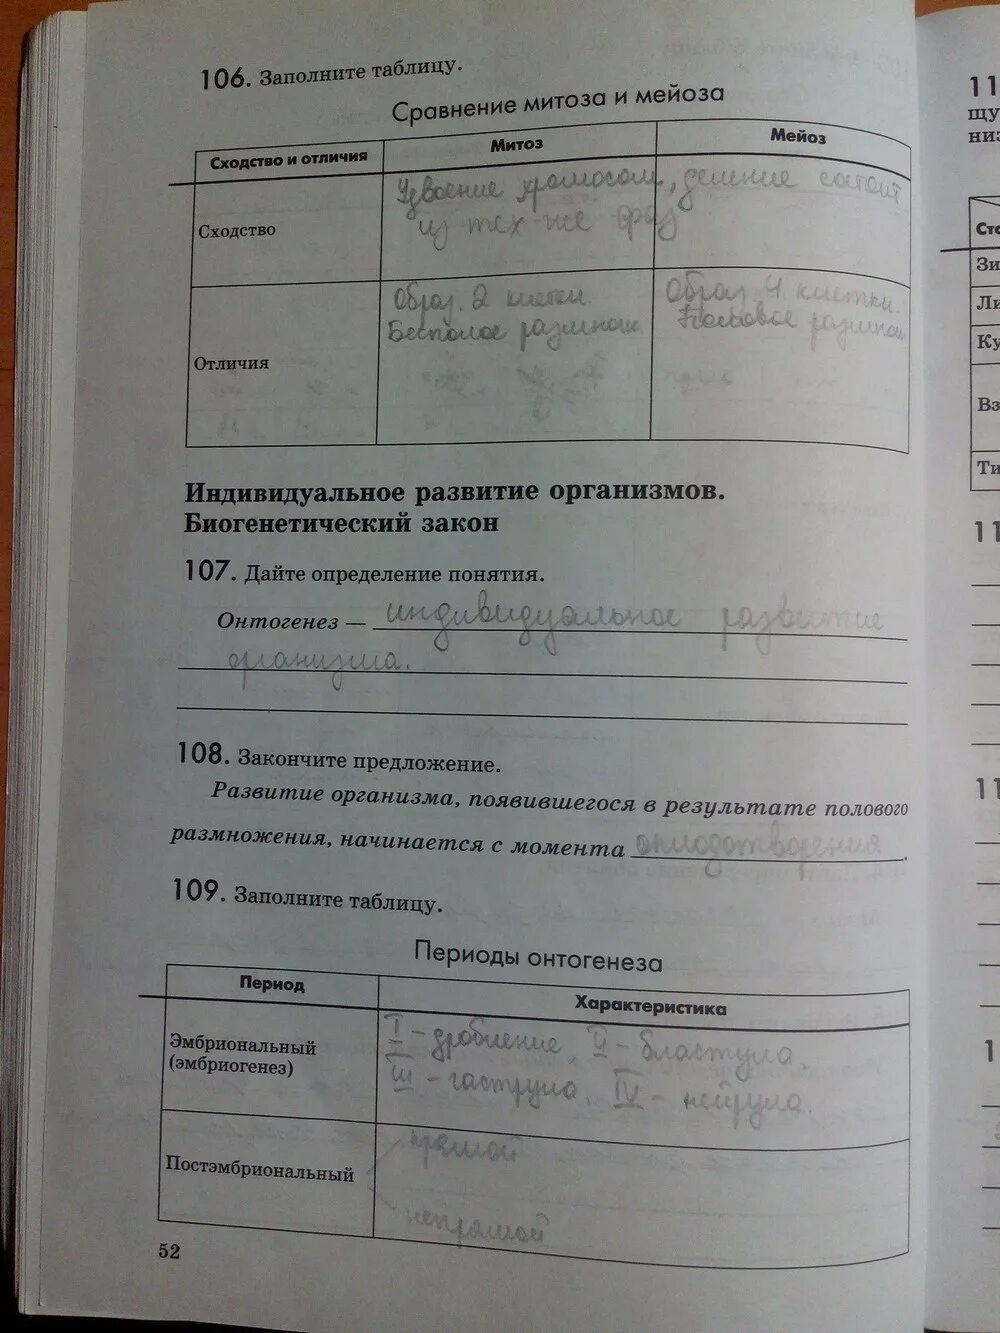 106. Заполните таблицу.
Сравнение митоза и мейоза
Сходство и отличия Митоз Мейоз
Сходство
Удвоение хромосом, деление состоит
из тех же фаз
Отличия
Образ. 2 клетки.
Бесполое размнож
Образ. 4 клетки.
Половое размнож
Индивидуальное развитие организмов.
Биогенетический закон
107. Дайте определение понятия.
Онтогенез — индивидуальное развитие
организма.
108. Закончите предложение.
Развитие организма, появившегося в результате полового
размножения, начинается с момента оплодотворения.
109. Заполните таблицу.
Периоды онтогенеза
Период Характеристика
Эмбриональный
(эмбриогенез)
I - дробление, II - бластула
III - гаструла, IV - нейрула.
Постэмбриональный
прямой
непрямой
52
11
щу
низ
Ста
Зи
Ли
Ку
Вз
Ти
11
11
1